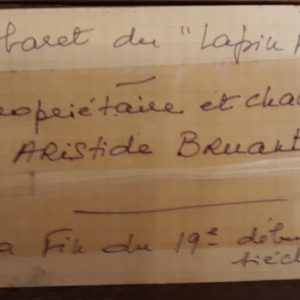 baret du "Lapin A
ropriétaire et cha
ARISTIDE BRUANT
a Fin du 19e débu
siècl